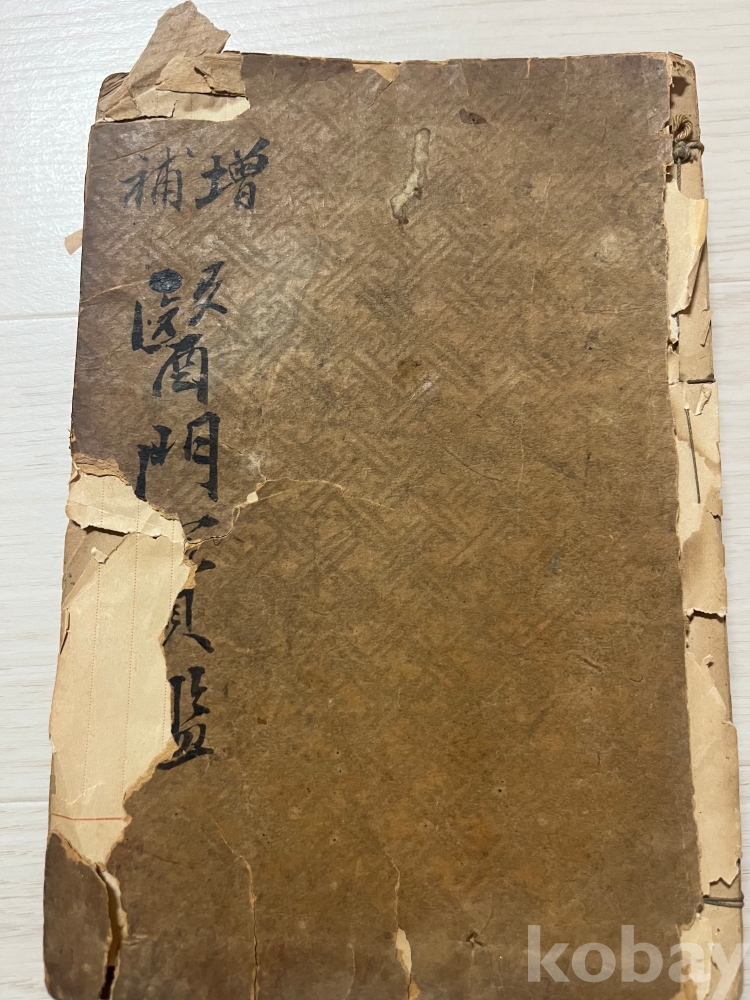 增補
醫門寶鑑
kobay